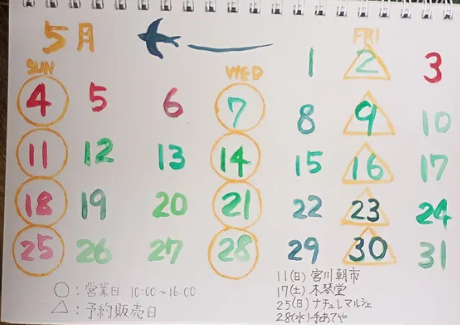 5月
SUN WED FRI
1 2 3
4 5 6 7 8 9 10
11 12 13 14 15 16 17
18 19 20 21 22 23 24
25 26 27 28 29 30 31
○：営業日 10:00～16:00
△：予約販売日
11(日) 宮川朝市
17(土) 木琴堂
25(日) ナチュレマルシェ
28(水) 手あてや